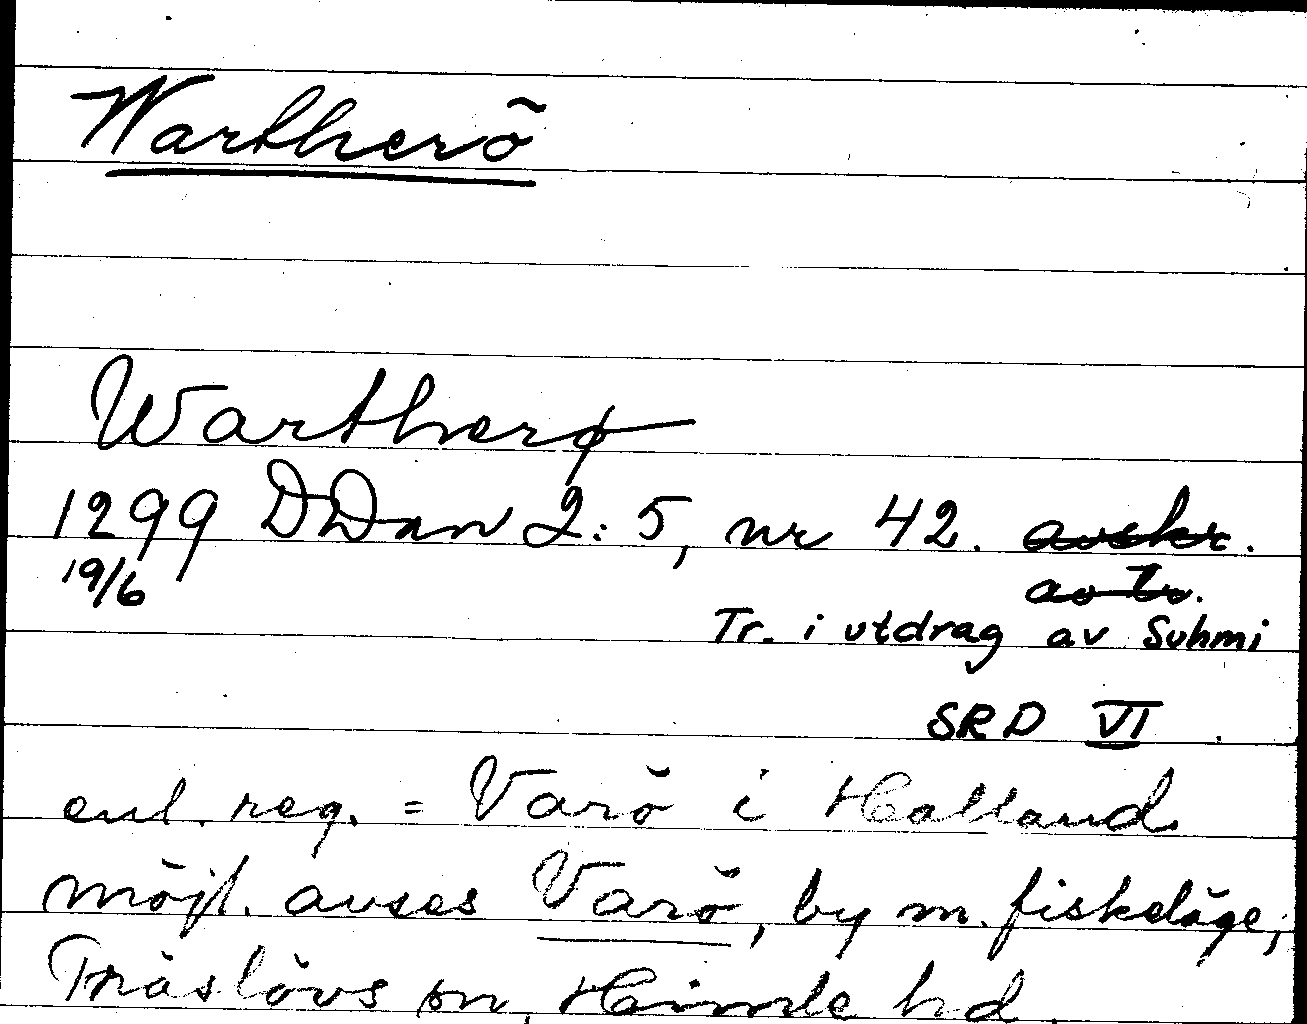 Wartherö
Wartherø
1299 DDan 2:5, nr 42. avskr.
19/6
av tr.
Tr. i utdrag av Suhm i
SRD VI
enl. reg. = Varö i Halland
möjl. avses Varö, by m. fiskeläge,
Träslövs sn, Himle hd.